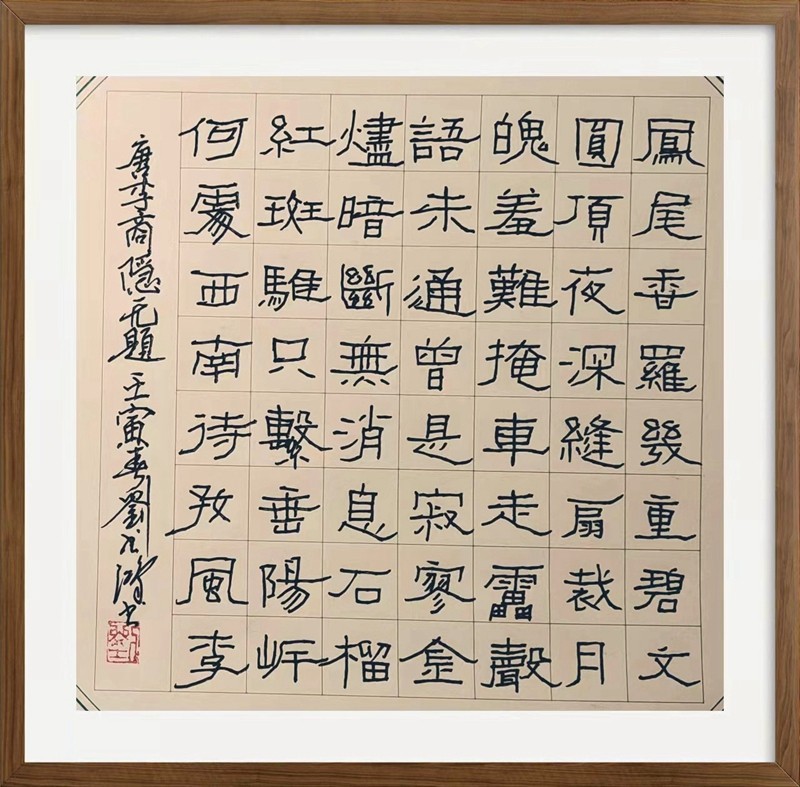 鳳尾香羅幾重碧文
圓頂夜深縫扇裁月
魄羞難掩車走靁聲
語未通曾是寂寥金
燼暗斷無消息石榴
紅斑騅只繫垂陽岸
何處西南待好風李
唐李商隱无題 壬寅春劉書